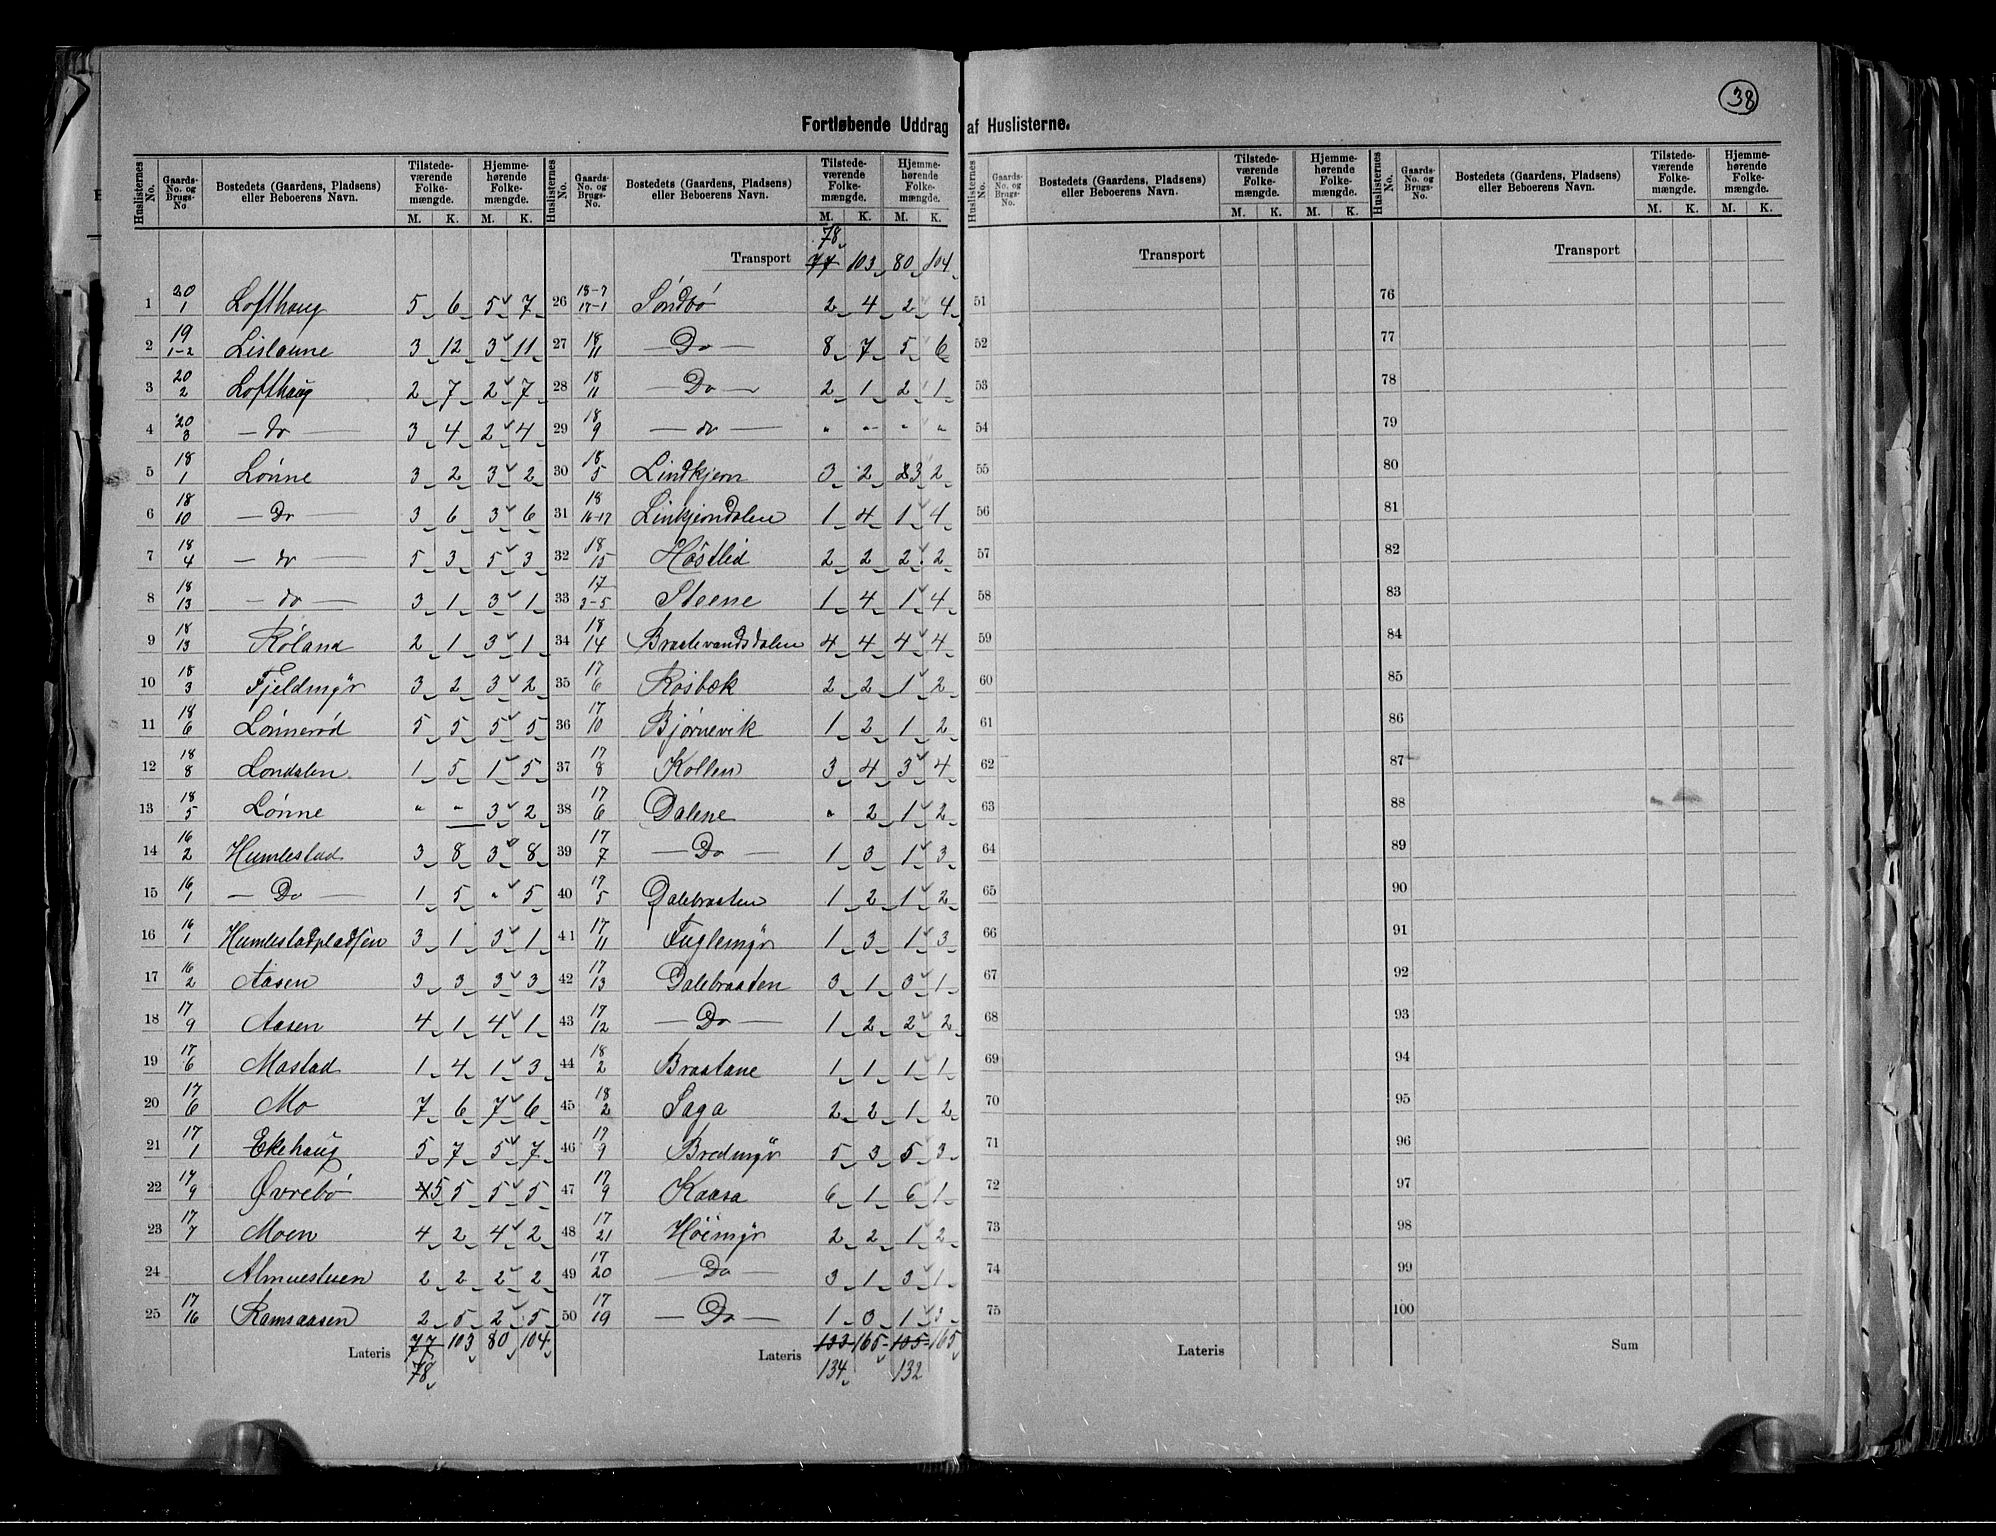 38
Fortløbende Uddrag af Huslisterne.
Huslisternes No. Gaards-No. og Brugs-No Bostedets (Gaardens, Pladsens) eller Beboerens Navn. Tilstedeværende Folkemængde. M. K. Hjemmehørende Folkemængde. M. K.
1 20/1 Lofthaug 5 6 5 7
2 19/1-2 Lislaune 3 12 3 11
3 20/2 Lofthaug 2 7 2 7
4 20/3 — do — 3 4 2 4
5 18/1 Lønne 3 2 3 2
6 18/10 — Do — 3 6 3 6
7 18/4 — do — 5 3 5 3
8 18/13 — do — 3 1 3 1
9 18/13 Røland 2 1 3 1
10 18/3 Fjeldmyr 3 2 3 2
11 18/6 Lønnerød 5 5 5 5
12 18/8 Løndalen 1 5 1 5
13 18/5 Lønne " " 3 2
14 16/2 Humlestad 3 8 3 8
15 16/1 — Do — 1 5 " 5
16 16/1 Humlestadpladsen 3 1 3 1
17 16/2 Aasen 3 3 3 3
18 17/9 Aasen 4 1 4 1
19 17/6 Mostad 1 4 1 3
20 17/6 Mo 7 6 7 6
21 17/1 Ekehaug 5 7 5 7
22 17/9 Øvrebø 4 5 5 5 5
23 17/7 Moen 4 2 4 2
24 Almuestuen 2 2 2 2
25 17/16 Ramsaasen 2 5 2 5
Lateris 77 103 80 104
78
Huslisternes No. Gaards-No. og Brugs-No. Bostedets (Gaardens, Pladsens) eller Beboerens Navn. Tilstedeværende Folkemængde. M. K. Hjemmehørende Folkemængde. M. K.
78
Transport 77 103 80 104
26 Söndbö 2 4 2 4
27 18/11 — Do — 8 7 5 6
28 18/11 — Do — 2 1 2 1
29 18/9 — do — " " " "
30 18/5 Lindkjern 3 2 2 3 2
31 18/16-17 Linkjerndalen 1 4 1 4
32 18/15 Høstlid 2 2 2 2
33 17/3-5 Steene 1 4 1 4
34 18/14 Braatevandsdalen 4 4 4 4
35 17/6 Rosbæk 2 2 1 2
36 17/10 Bjørnevik 1 2 1 2
37 17/8 Kollen 3 4 3 4
38 17/6 Dalene " 2 1 2
39 17/7 — Do — 1 3 1 3
40 17/5 Dalebraaten 1 2 1 2
41 17/11 Fuglemyr 1 3 1 3
42 17/13 Dalebraaten 3 1 3 1
43 17/12 — Do — 1 2 2 2
44 18/2 Braatane 1 1 1 1
45 18/2 Saga 2 2 1 2
46 17/9 Bredmyr 5 3 5 3
47 17/9 Kaasa 6 1 6 1
48 17/21 Höimyr 2 2 1 2
49 17/20 — Do — 3 1 3 1
50 17/19 — Do — 1 3 1 3
Lateris 133 165 135 165
134 132
Huslisternes No. Gaards-No. og Brugs-No. Bostedets (Gaardens, Pladsens) eller Beboerens Navn. Tilstedeværende Folkemængde. M. K. Hjemmehørende Folkemængde. M. K.
Transport
51
52
53
54
55
56
57
58
59
60
61
62
63
64
65
66
67
68
69
70
71
72
73
74
75
Lateris
Huslisternes No. Gaards-No. og Brugs-No. Bostedets (Gaardens, Pladsens) eller Beboerens Navn. Tilstedeværende Folkemængde. M. K. Hjemmehørende Folkemængde. M. K.
Transport
76
77
78
79
80
81
82
83
84
85
86
87
88
89
90
91
92
93
94
95
96
97
98
99
100
Sum